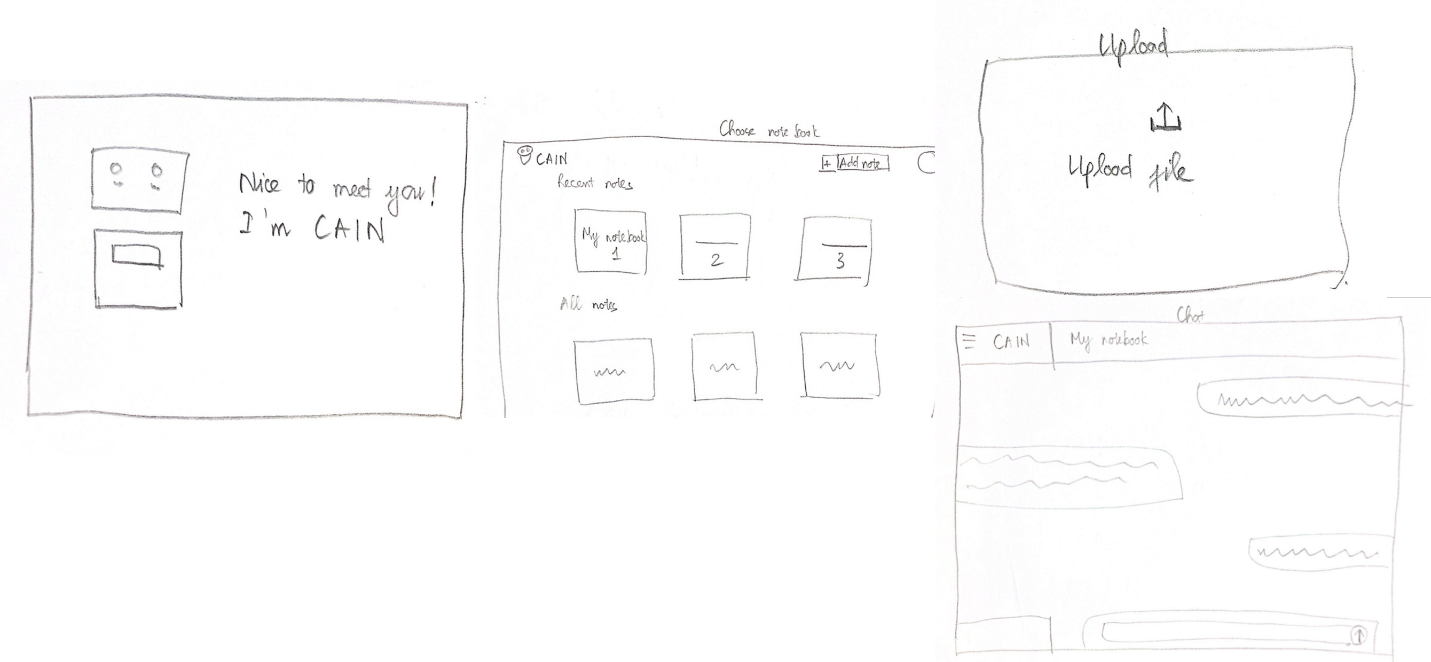 Nice to meet you!
I'm CAIN
Choose note book
CAIN
+ Add note
Recent notes
My notebook
1
2
3
All notes
Upload
Upload file
Chat
CAIN
My notebook